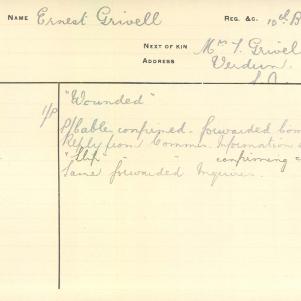 NAME Ernest Grivell REG. &C. 10th B
NEXT OF KIN Mrs Grivel
ADDRESS Verdun
S.A
"Wounded"
1/P
cable, confirmed. forwarded Com
Reply from Commn. Information
" " confirming c
Same forwarded Inquirer.